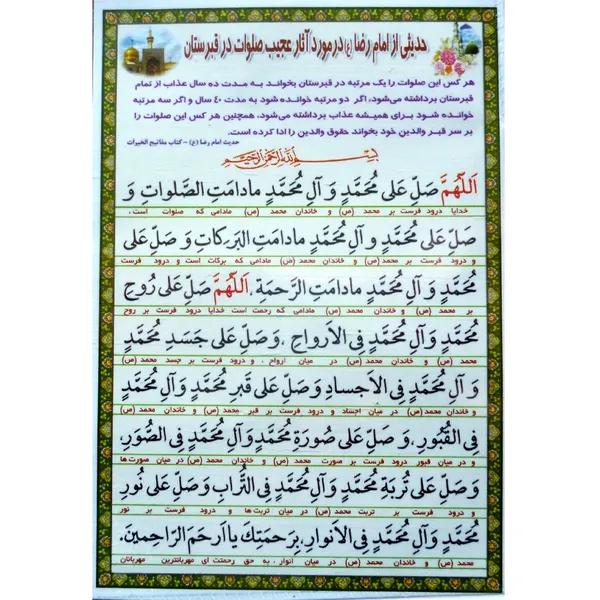 حدیثی از امام رضا (ع) در مورد آثار عجیب صلوات در قبرستان
هر کس این صلوات را یک مرتبه در قبرستان بخواند به مدت ده سال عذاب از تمام
قبرستان برداشته می‌شود، اگر دو مرتبه خوانده شود به مدت ٤٠ سال و اگر سه مرتبه
خوانده شود برای همیشه عذاب برداشته می‌شود، همچنین هر کس این صلوات را
بر سر قبر والدین خود بخواند حقوق والدین را ادا کرده است.
حدیث امام رضا (ع) – کتاب مفاتیح الخیرات
بسم الله الرحمن الرحیم
اَللّهُمَّ صَلِّ عَلی مُحَمَّدٍ وَ آلِ مُحَمَّدٍ مادامَتِ الصَّلَواتِ وَ
خدایا درود فرست بر محمد (ص) و خاندان محمد (ص) مادامی که صلوات است ،
صَلِّ عَلی مُحَمَّدٍ و آلِ مُحَمَّدٍ مادامَتِ البَرَکاتِ وَ صَلِّ عَلی
و درود فرست بر محمد (ص) و خاندان محمد (ص) مادامی که برکات است و درود فرست
مُحَمَّدٍ وَ آلِ مُحَمَّدٍ مادامَتِ الرَّحمَةِ ، اَللّهُمَّ صَلِّ عَلی رُوحِ
بر محمد (ص) و خاندان محمد (ص) مادامی که رحمت است خدایا درود فرست بر روح
مُحَمَّدٍ وَ آلِ مُحَمَّدٍ فِی الاَرواحِ ، وَ صَلِّ عَلی جَسَدِ مُحَمَّدٍ
محمد (ص) و خاندان محمد (ص) در میان ارواح ، و درود فرست بر جسد محمد (ص)
وَ آلِ مُحَمَّدٍ فِی الاَجسادِ وَ صَلِّ عَلی قَبرِ مُحَمَّدٍ وَ آلِ مُحَمَّدٍ
و خاندان محمد (ص) در میان اجساد و درود فرست بر قبر محمد (ص) و خاندان محمد (ص)
فِی القُبُورِ ، وَ صَلِّ عَلی صُورَةِ مُحَمَّدٍ وَ آلِ مُحَمَّدٍ فِی الصُّوَرِ،
در میان قبور و درود فرست بر صورت محمد (ص) و خاندان محمد (ص) در میان صورت ها
وَ صَلِّ عَلی تُربَةِ مُحَمَّدٍ وَ آلِ مُحَمَّدٍ فِی التُّرابِ وَ صَلِّ عَلی نُورِ
و درود فرست بر تربت محمد (ص) و خاندان محمد (ص) در میان تربت ها و درود فرست بر نور
مُحَمَّدٍ وَ آلِ مُحَمَّدٍ فِی الاَنوارِ، بِرَحمَتِکَ یا اَرحَمَ الرّاحِمینَ.
محمد (ص) و خاندان محمد (ص) در میان انوار ، به حق رحمتت ای مهربانترین مهربانان